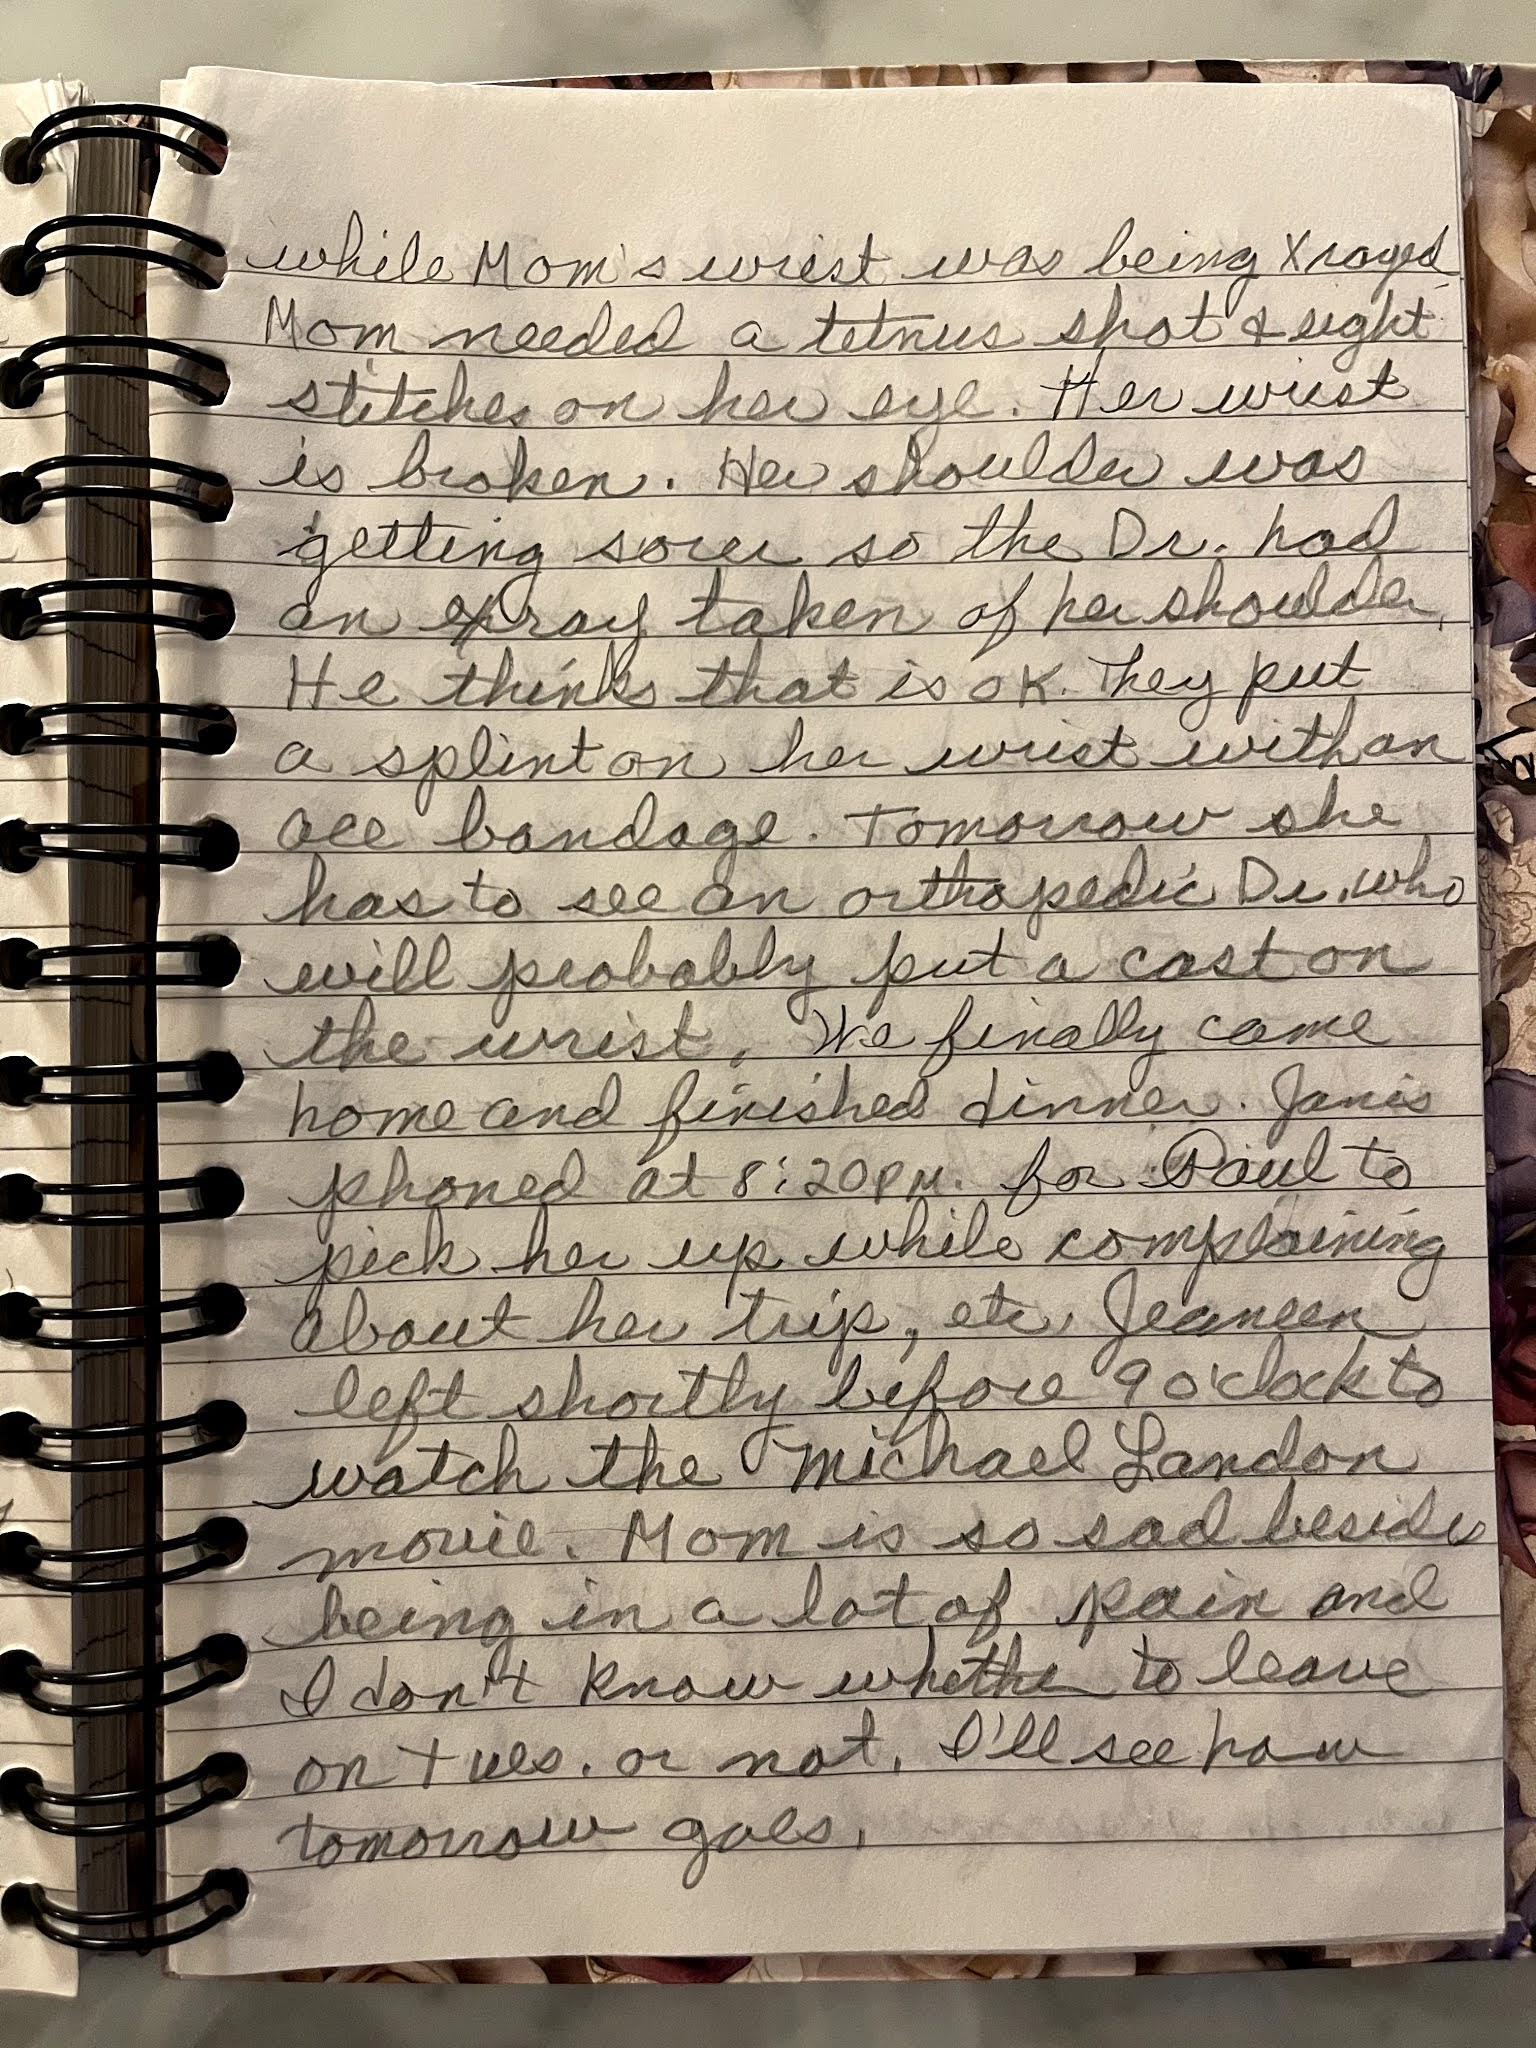 while Mom's wrist was being Xrayed
Mom needed a tetnus shot & eight
stitches on her eye. Her wrist
is broken. Her shoulder was
getting sorer so the Dr. had
an xray taken of her shoulder.
He thinks that is OK. They put
a splint on her wrist with an
ace bandage. Tomorrow she
has to see an orthopedic Dr. who
will probably put a cast on
the wrist. We finally came
home and finished dinner. Janis
phoned at 8:20PM. for Paul to
pick her up while complaining
about her trip, etc. Jeaneen
left shortly before 9 o'clock to
watch the Michael Landon
movie. Mom is so sad besides
being in a lot of pain and
I don't know whether to leave
on Tues. or not. I'll see how
tomorrow goes.